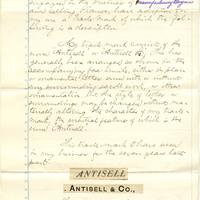 engaged in the business of
and selling Pianos, have adopted for
my use a Trade-mark of which the fol-
lowing is a description
My trade mark consists of the
word "Antisell" or Antisell &
generally been arranged as shown in the
accompanying fac-simile, either in plain
or ornamental letters and with or without
any surrounding scroll work or other
ornamentation. But the style of letter or
surroundings may be changed without ma-
terially altering the character of the trade-
mark, the essential feature of which is the
word Antisell.
This trade-mark I have used
in my business for the seven years last
past.
ANTISELL
ANTISELL & Co.,